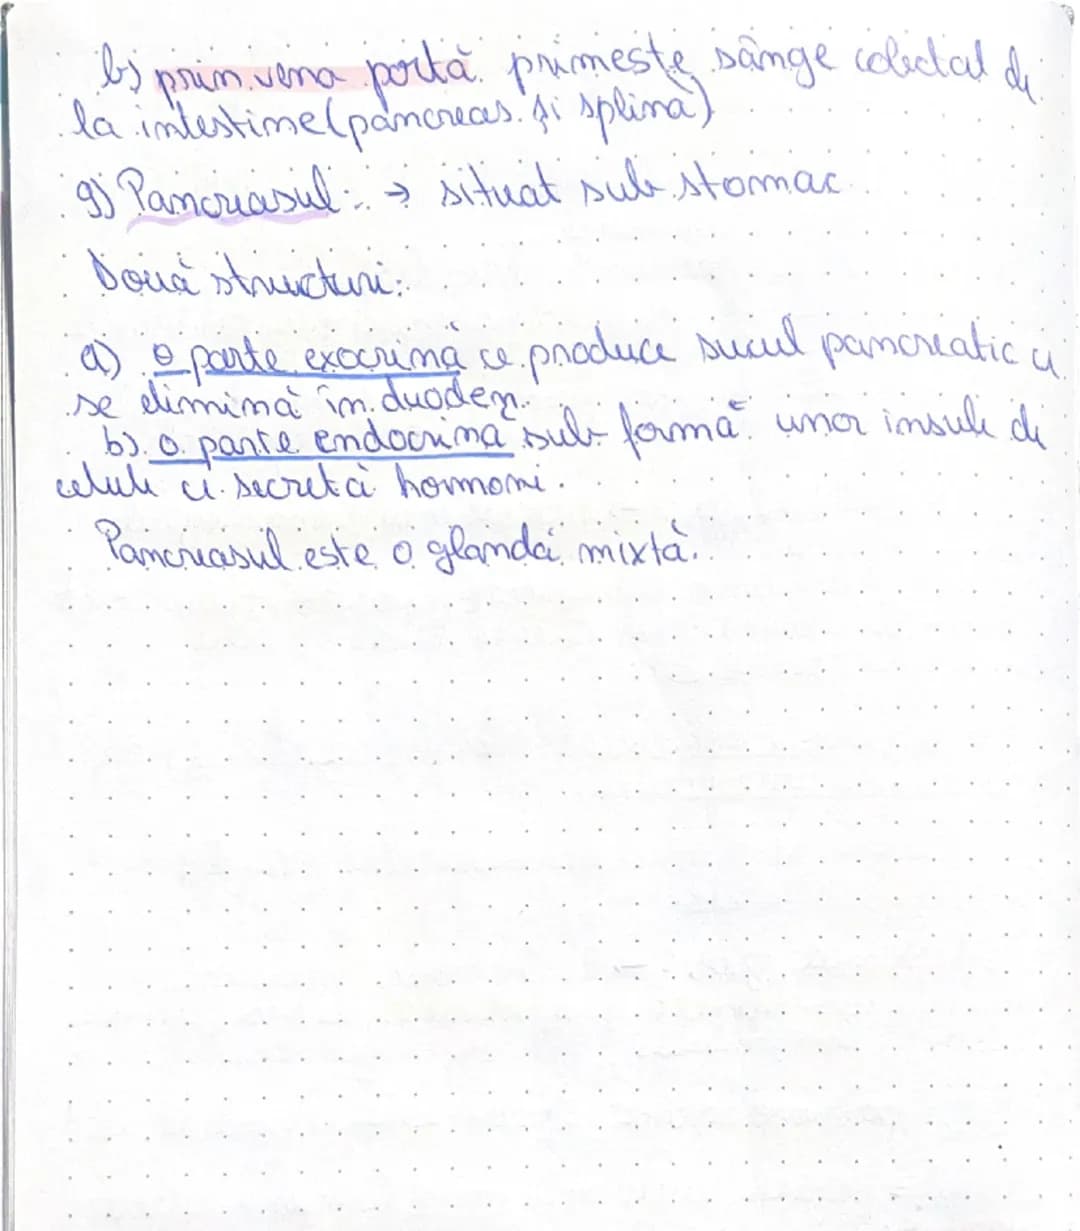 b) prin vena portă primește sânge colectat de
la intestine (pancreas și splină)
g) Pancreasul: → situat sub stomac
Două structuri:
a) o parte exocrină ce produce sucul pancreatic ce
se elimină în duoden.
b) o parte endocrină sub formă unor insule de
celule ce secretă hormoni.
Pancreasul este o glandă mixtă.